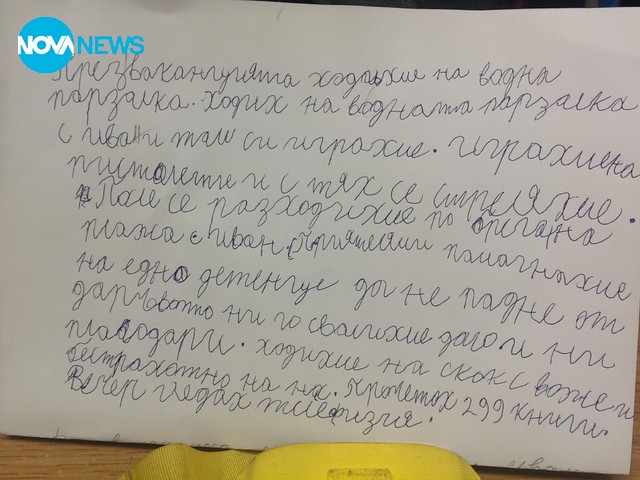 NOVA NEWS
Презваканцията ходихме на водна
парзалка. Ходих на водната парзалка
с иван и там си играхме. играхмена
пистолети и с тях се стреляхме.
После се разходихме по брега на
плажа с иван с приятели помагнахме
на едно детенце да не падне от
дарчвото ни го свалихме долои ни
плагодари. ходихме на скок с важе и
бестрахотно на нх. Прочетох 299 книги.
Вечер гледах телефизия.